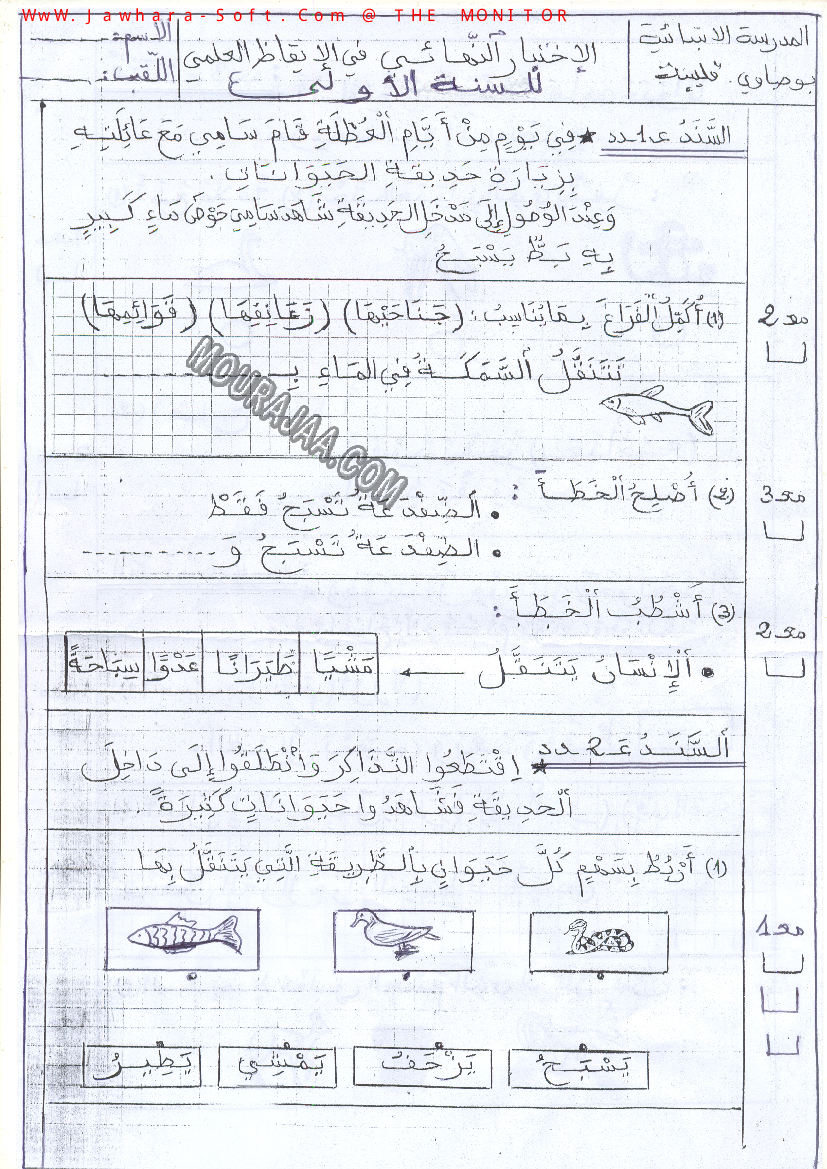 WwW. Jawhara-Soft.Com @ THE MONITOR
المدرسة الابتدائية
بوصاوي. قليبية
الإختبار النّهائي في الإيقاظ العلمي
للسنة الأولى
الاسم:
اللّقب:
السَّنَدُ عـ1ـدد ★ فِي يَوْمٍ مِنْ أَيَّامِ الْعُطْلَةِ قَامَ سَامِي مَعَ عَائِلَتِهِ
بِزِيَارَةِ حَدِيقَةِ الحَيَوَانَاتِ.
وَعِنْدَ الوُصُولِ إِلَى مَدْخَلِ الحَدِيقَةِ شَاهَدَ سَامِي حَوْضَ مَاءٍ كَبِيرٍ
بِهِ بَطٌّ يَسْبَحُ
(1) أُكَمِّلُ الْفَرَاغَ بِمَا يُنَاسِبُ: (جَنَاحَيْهَا) (زَعَانِفِهَا) (قَوَائِمِهَا)
تَتَنَقَّلُ السَّمَكَةُ فِي المَاءِ بِـ ------------
مع 2
MOURAJAA.COM
(2) أُصْلِحُ الْخَطَأَ :
• الضِّفْدَعَةُ تَسْبَحُ فَقَطْ
• الضِّفْدَعَةُ تَسْبَحُ وَ ------------
مع 3
(3) أَشْطُبُ الْخَطَأَ :
• الْإِنْسَانُ يَتَنَقَّلُ ← مَشْيًا طَيَرَانًا عَدْوًا سِبَاحَةً
مع 2
السَّنَدُ عَـ2ـدد ★ اِقْتَطَعُوا التَّذَاكِرَ وَانْطَلَقُوا إِلَى دَاخِلِ
الْحَدِيقَةِ فَشَاهَدُوا حَيَوَانَاتٍ كَثِيرَةً.
(1) أَرْبُطُ بِسَهْمٍ كُلَّ حَيَوَانٍ بِالطَّرِيقَةِ الَّتِي يَتَنَقَّلُ بِهَا
مع 1
يَسْبَحُ يَزْحَفُ يَمْشِي يَطِيرُ